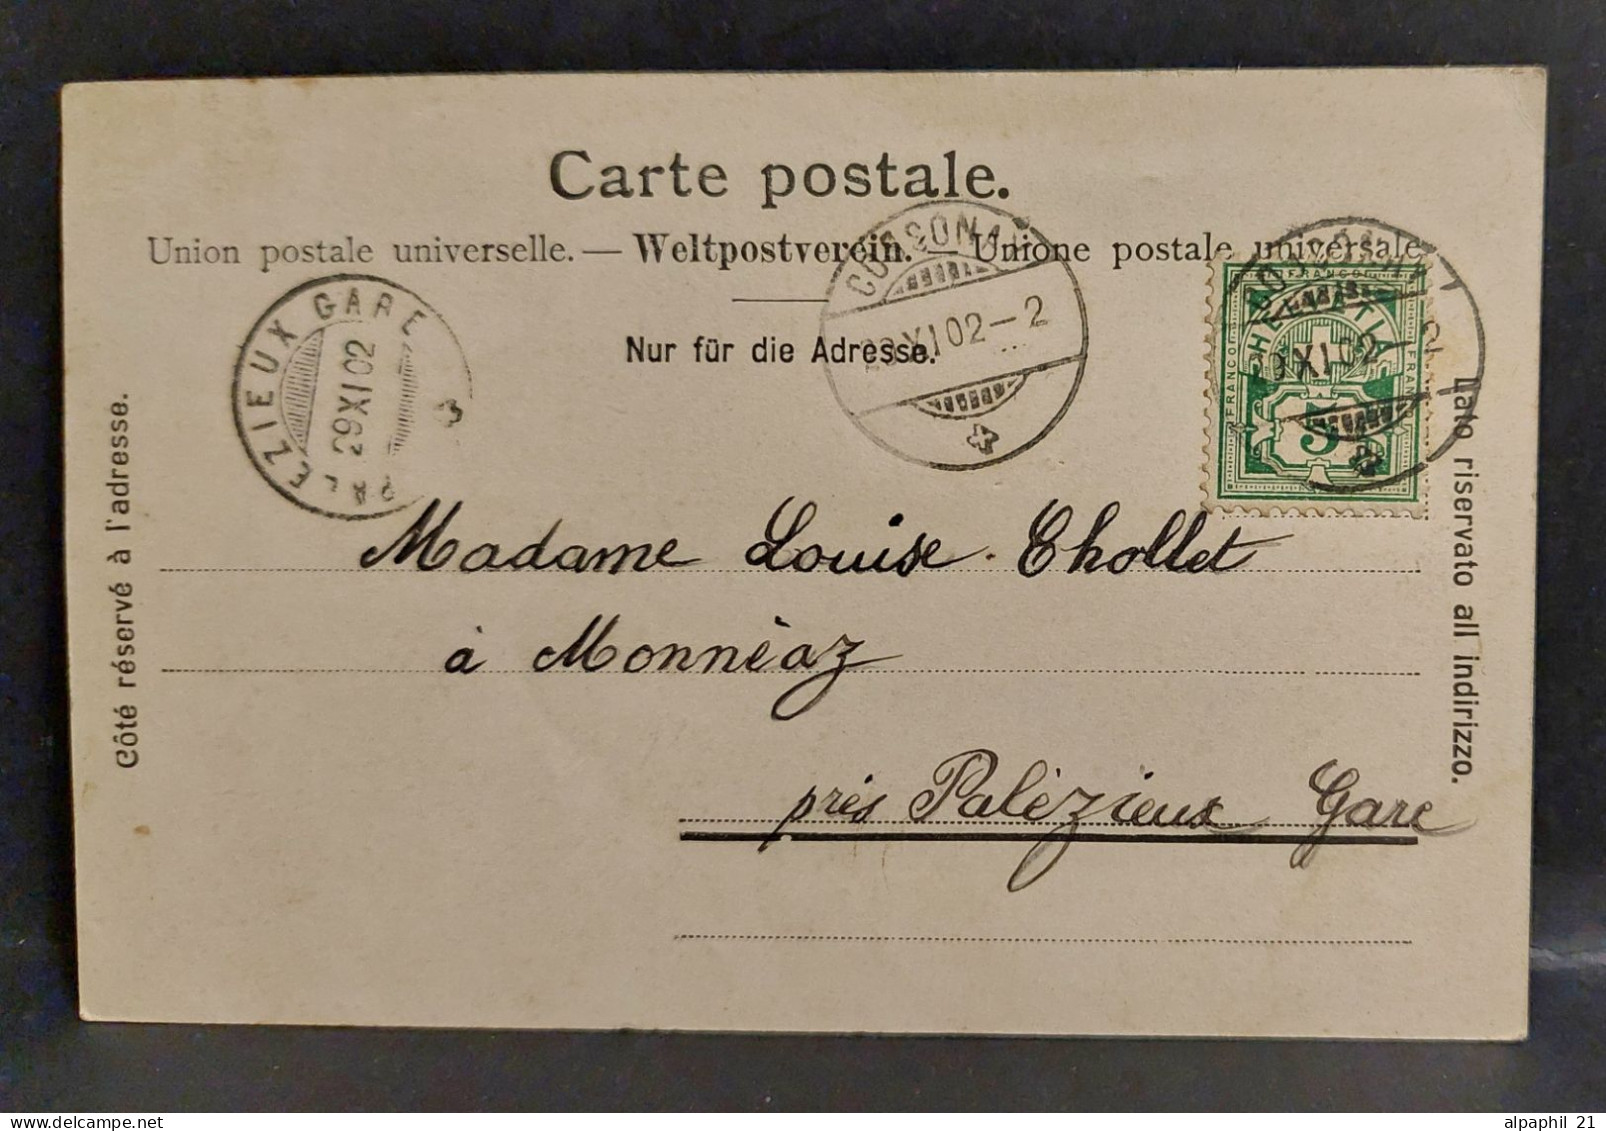 Carte postale.
Union postale universelle. — Weltpostverein. — Unione postale universale
Nur für die Adresse.
Côté réservé à l'adresse.
Lato riservato all indirizzo.
PALÉZIEUX GARE
29 XI 02
COSSONAY
29 XI 02 – 2
COSSONAY
9 XI 02
FRANCO
FRANCO
FRANCO
HELVETIA
5
Madame Louise Chollet
à Monnéaz
près Palézieux Gare
alpaphil 21